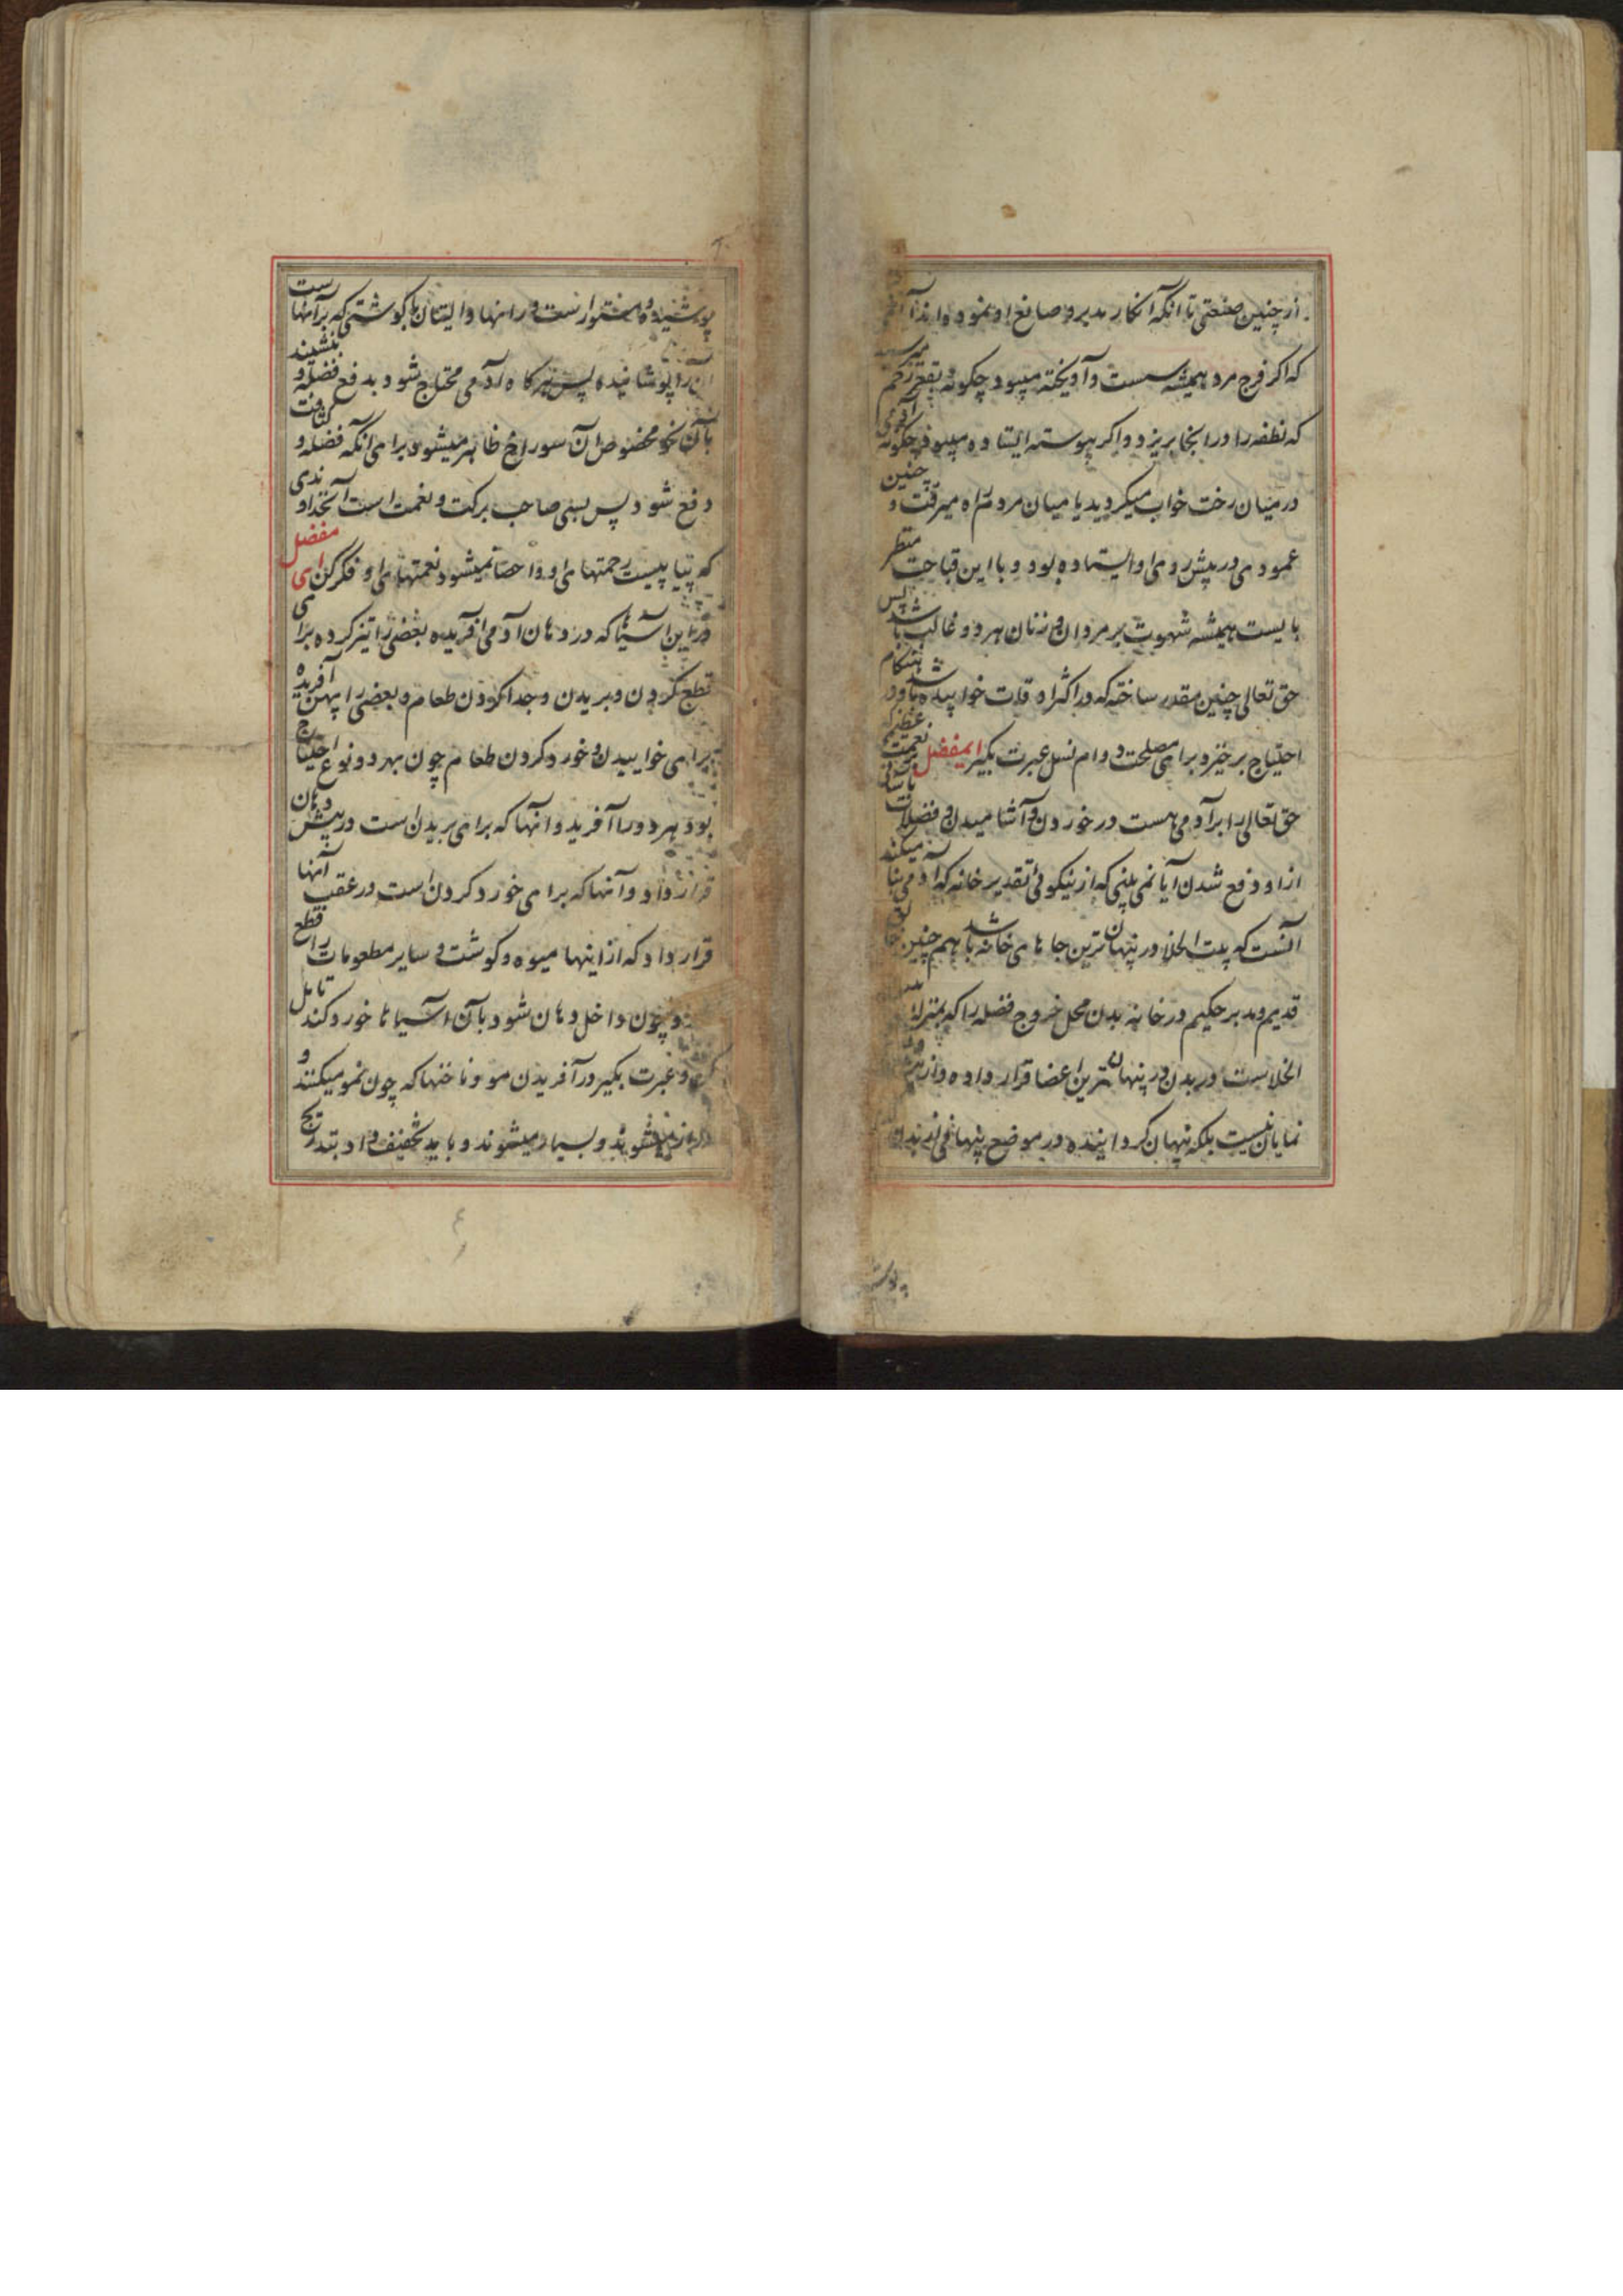 از چنین صنعتی تا انکه انکار مدبر و صانع او نمود و اندا
که اکر فرج مرد همیشه سست و آویخته میبود چکونه بقعر رحم میرسید
که نطفه را در انجا بریزد و اکر پیوسته ایستاده میبود چکونه آدمی
در میان رخت خواب میکردید یا میان مردم راه میرفت و چنین
عمودی در پیش روی او ایستاده بود و با این قباحت منظر
بایست همیشه شهوت بر مردان و زنان هر دو غالب باشد پس
حق تعالی چنین مقدر ساخته که در اکثر اوقات خوابیده باشد و در هنکام
احتیاج برخیزد برای مصلحت دوام نسل عبرت بکیر ایمفضل نعمت عظیم که
حق تعالی را بر آدمی هست در خوردن و آشامیدن و فضلات بآسانی
از او دفع شدن ایا نمی بینی که از نیکوئی تقدیر خانه که آدمی بنا میکند
آنست که بیت الخلا در پنهان ترین جاهای خانه باشد هم چنین
قدیم و مدبر حکیم در خانه بدن محل خروج فضله را که بمنزله
الخلاست در بدن در پنهان ترین اعضا قرار داده و از
نمایان نیست بلکه پنهان کردانیده در موضع پنهانی از بدن
پوشیده و مستور است و رانها و الیتان با کوشتی که بر آنهاست
آن را پوشانیده پس هر کاه آدمی محتاج شود بدفع فضله و بنشیند
بآن نحو مخصوص آن سوراخ ظاهر میشود برای انکه فضله و کثافت
دفع شود پس بسی صاحب برکت و نعمت است آنخداوندی
که پیاپیست رحمتهای او و احصا نمیشود نعمتهای او فکر کن ای مفضل
در این آسیاها که در دهان آدمی آفریده بعضی را تیز کرده برای
قطع کردن و بریدن و جدا کردن طعام و بعضی را پهن آفریده
برای خاییدن و خورد کردن طعام چون بهر دو نوع احتیاج
بود هر دو را آفرید و انها که برای بریدن است در پیش دهان
قرار داد و آنها که برای خورد کردن است در عقب آنها
قرار داد که از اینها میوه و کوشت و سایر مطعومات را قطع
و چون داخل دهان شود بآن آسیاها خورد کند تامل
کن و عبرت بکیر در آفریدن مو و ناخنها که چون نمو میکنند و
دراز میشوند و بسیار میشوند و باید تخفیف داد بتدریج